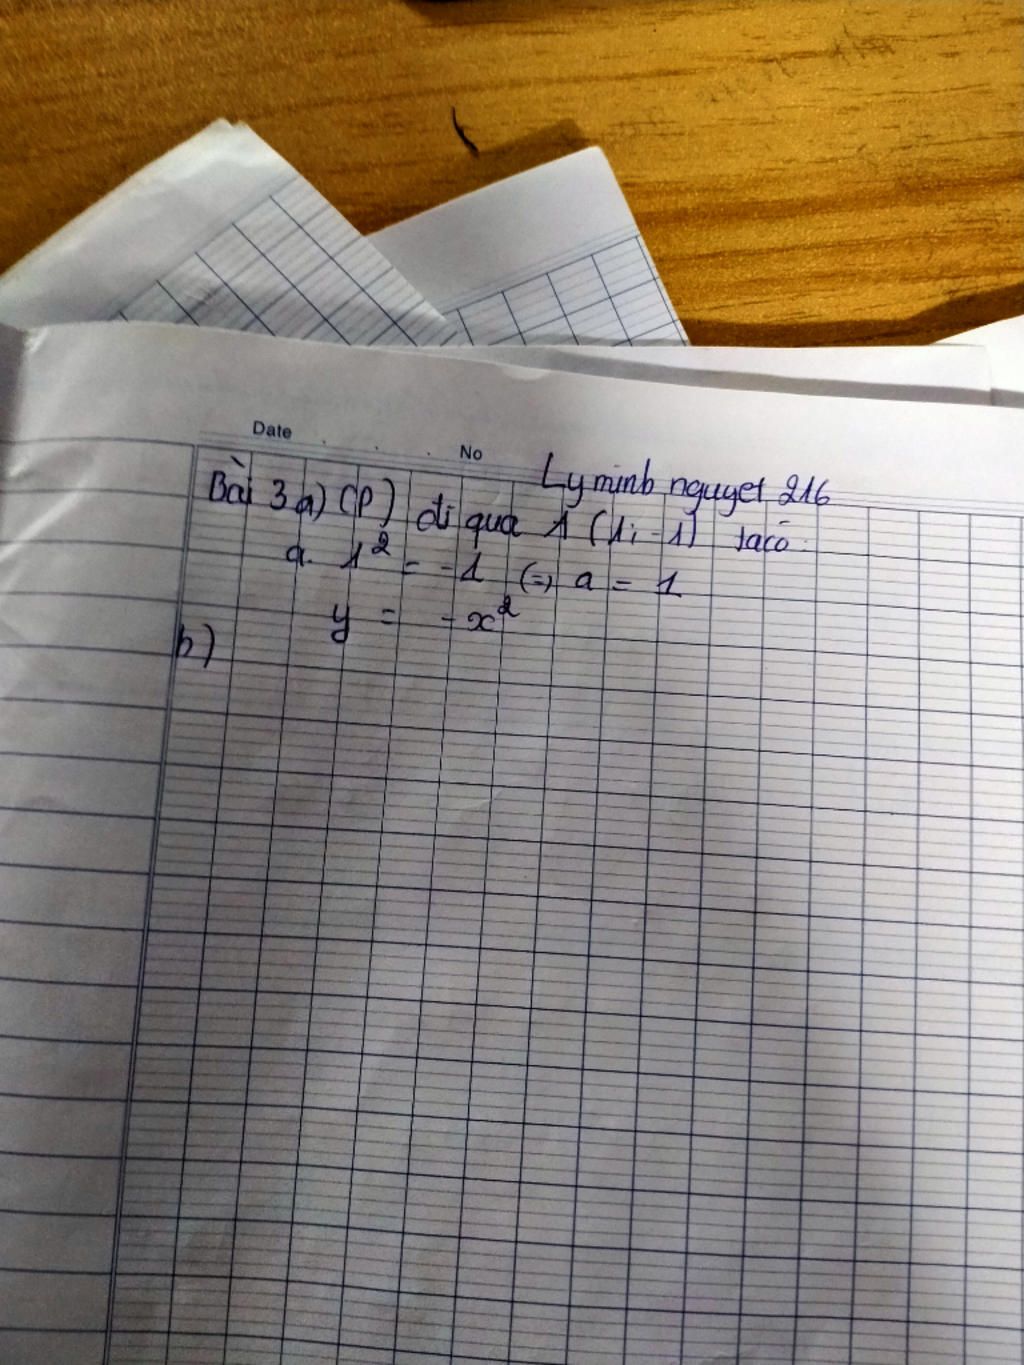 Date No
Ly minh nguyet 216
Bài 3 a) (P) đi qua A (1; -1) ta có:
a. 1² = -1 (=) a = 1
y = -x²
b)